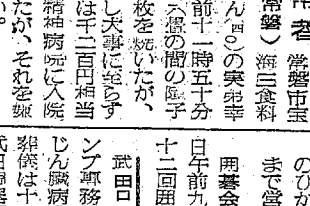 用者 常磐市宝
常磐）海三食料
ん（四〇）の実弟幸
前十一時五十分
六畳の間の障子
枚を焼いたが、
し大事に至らず
は千二百円相当
精神病院に入院
たが、それを嫌
い。
のびが
まで営
囲碁会
日午前九
十二回囲
武田ロ
ンプ専務
じん臓病
葬儀は十
武田